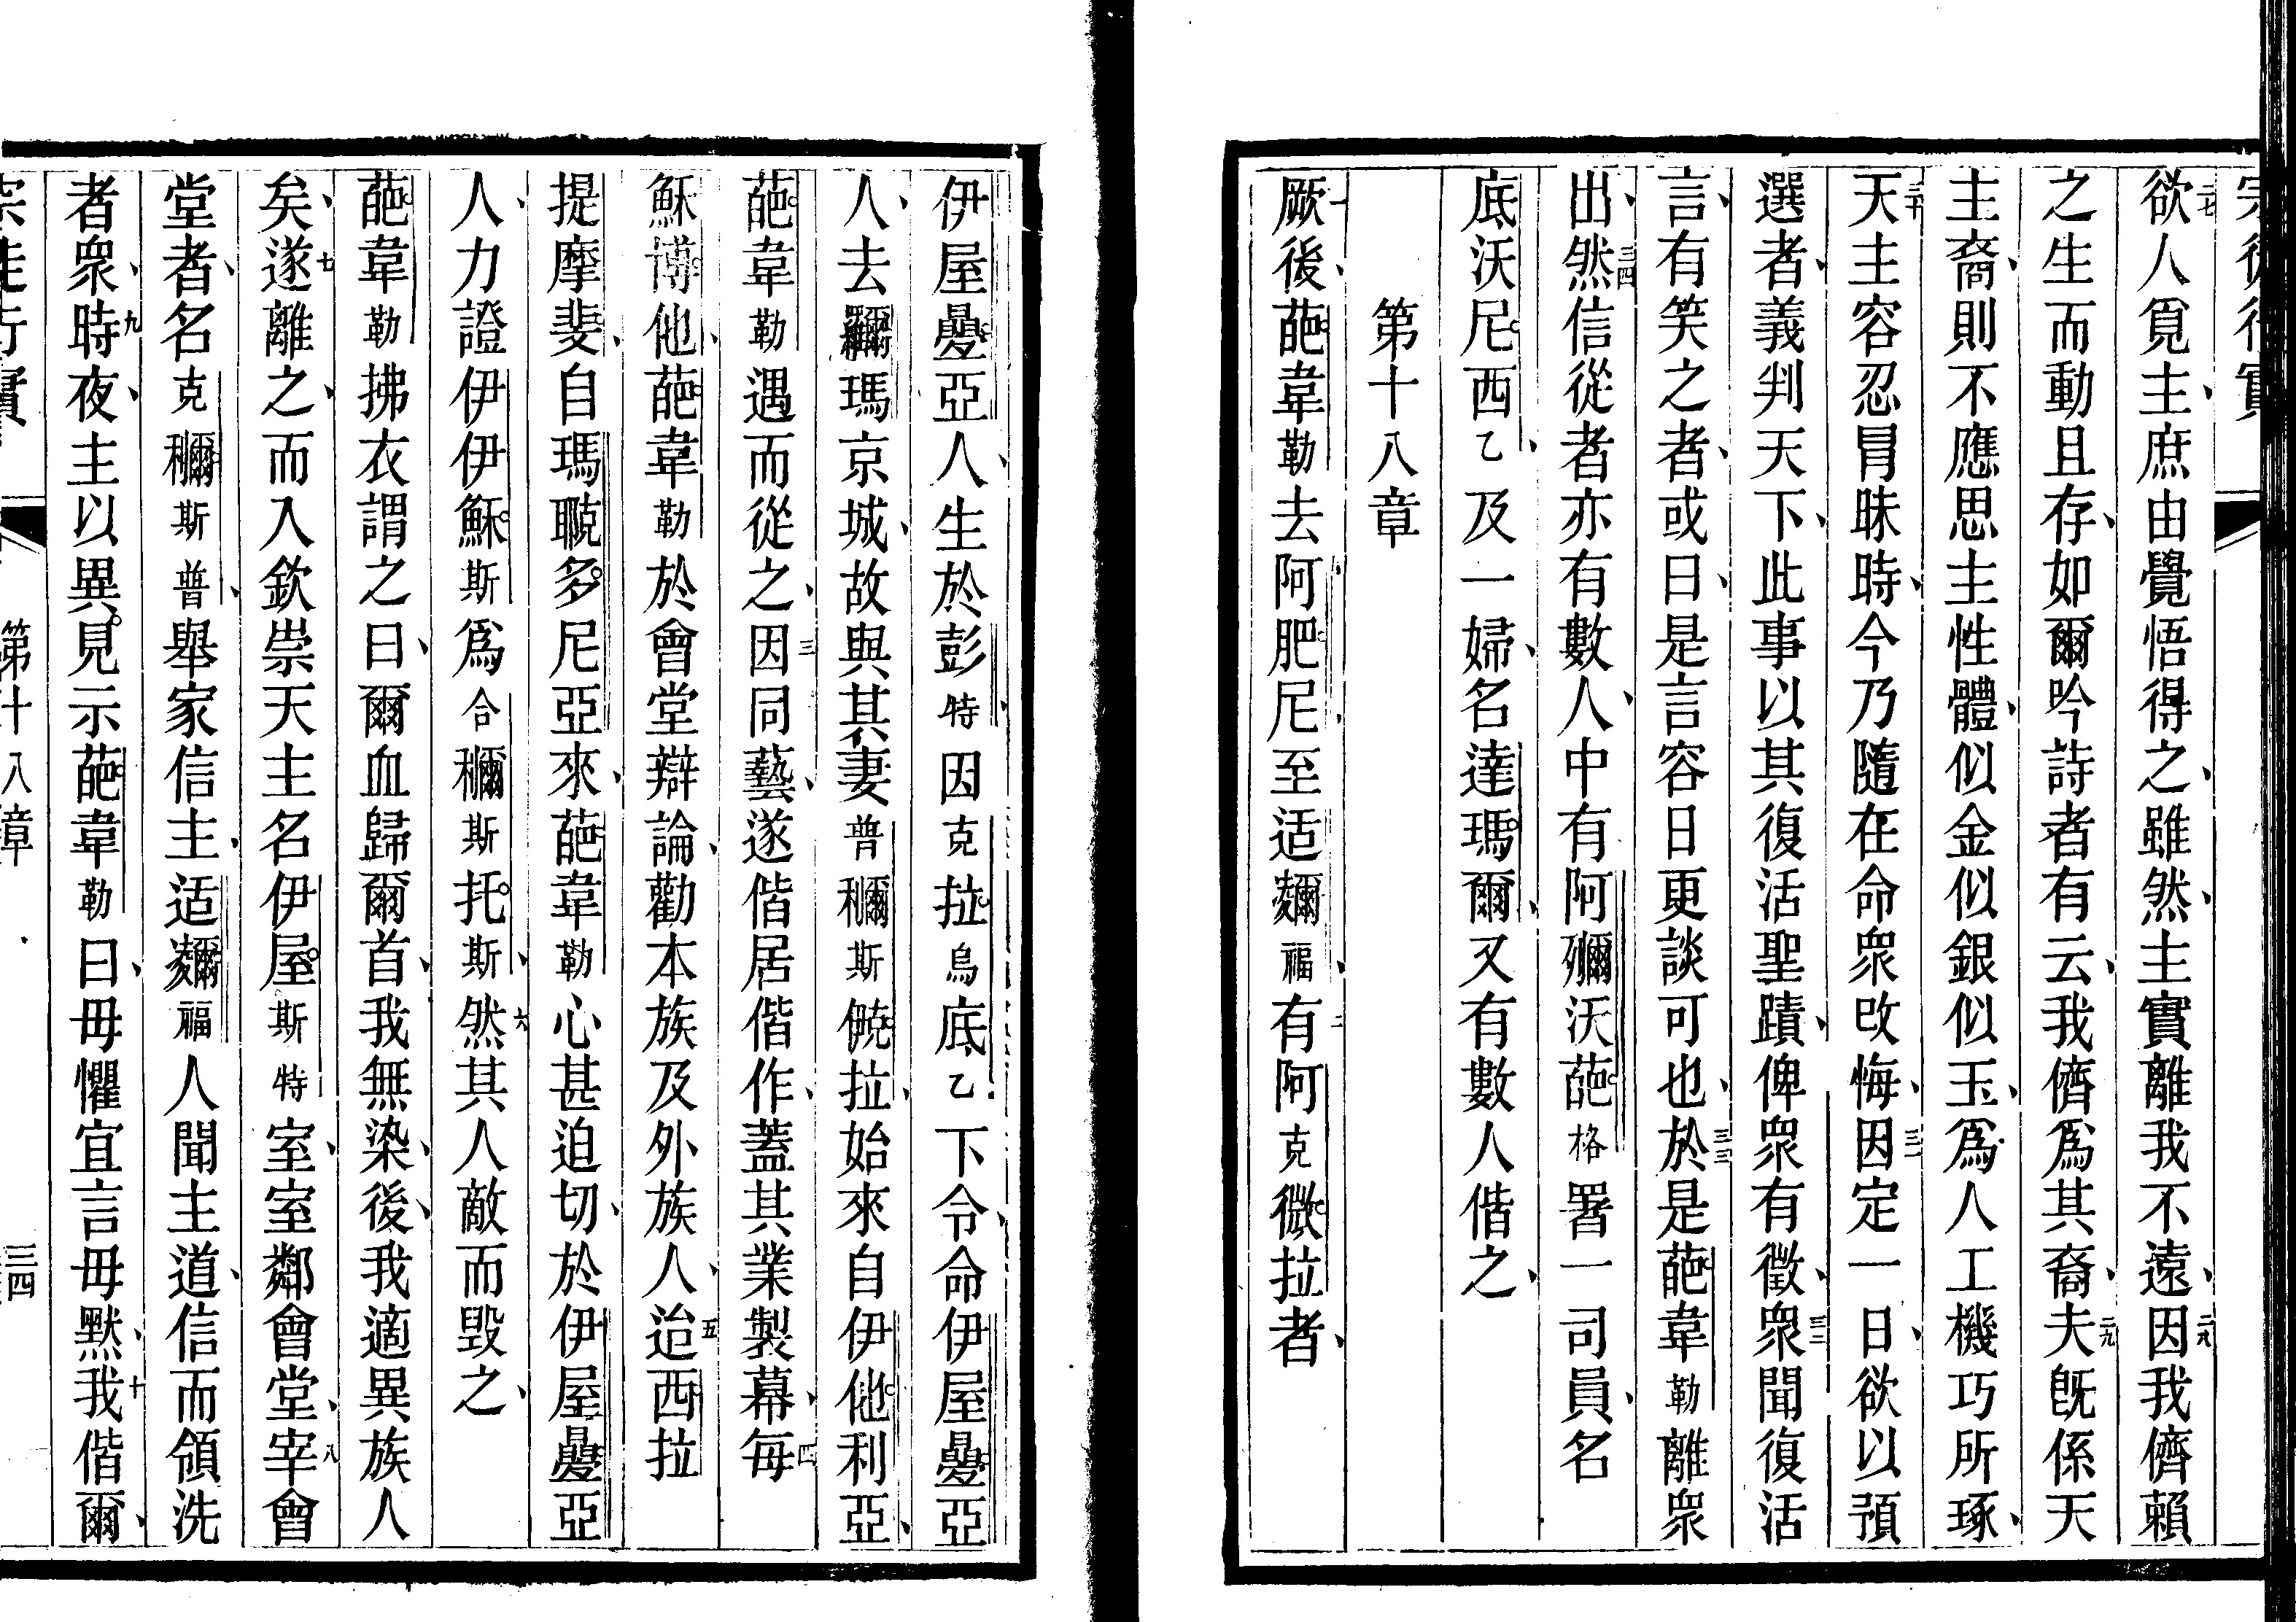 宗徒行實
二七欲人覓主、庶由覺悟得之、雖然、主實離我不遠、二八因我儕賴
之生而動且存、如爾吟詩者有云、我儕爲其裔、二九夫旣係天
主裔、則不應思主性體、似金似銀似玉、爲人工機巧所琢、
三十天主容忍冐昧時、今乃隨在命衆改悔、三一因定一日、欲以預
選者、義判天下、此事以其復活聖蹟、俾衆有徵、三二衆聞復活
言、有笑之者、或曰、是言容日更談可也、三三於是葩韋勒離衆
出、三四然信從者亦有數人、中有阿㺄沃葩格署一司員、名
底沃尼西乙、及一婦、名達瑪爾、又有數人偕之、
第十八章
一厥後、葩韋勒去阿肥尼、至适福、二有阿克微拉者、
伊屋亞人、生於彭特、因克拉烏底乙下令、命伊屋亞
人去瑪京城、故與其妻普斯拉、始來自伊他利亞、
葩韋勒遇而從之、三因同藝、遂偕居偕作、蓋其業製幕、四每
穌博他、葩韋勒於會堂辯論、勸本族及外族人、五迨西拉
提摩斐、自瑪多尼亞來、葩韋勒心甚迫切、於伊屋亞
人、力證伊伊穌斯爲合斯托斯、六然其人敵而毀之、
葩韋勒拂衣謂之曰、爾血歸爾首、我無染、後、我適異族人
矣、七遂離之、而入欽崇天主名伊屋斯特室、室鄰會堂、八宰會
堂者、名克斯普、舉家信主、适福人聞主道、信而領洗
者衆、九時夜、主以異見示葩韋勒曰、毋懼宜言毋默、十我偕爾、
宗徒行實 第十八章 三四